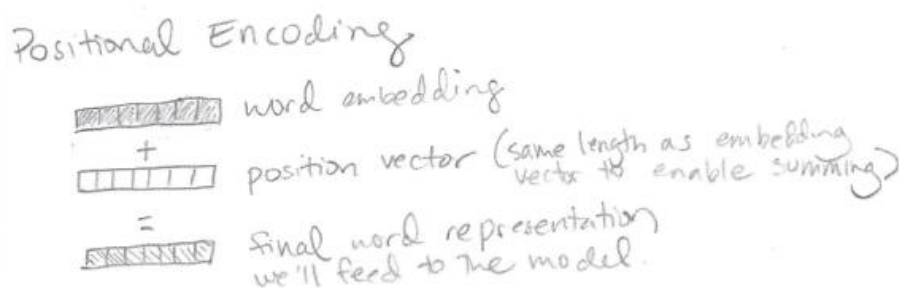 Positional Encoding
word embedding
+
position vector (same length as embedding
vector to enable summing)
=
final word representation
we'll feed to the model.